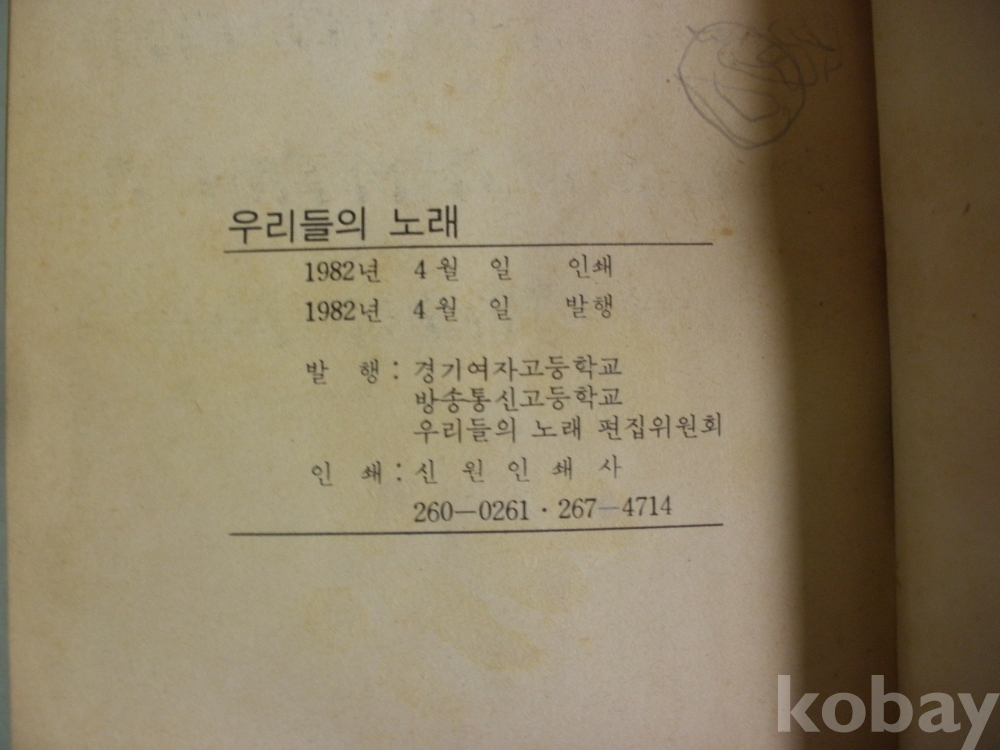 우리들의 노래
1982년 4월 일 인쇄
1982년 4월 일 발행
발 행 : 경기여자고등학교
방송통신고등학교
우리들의 노래 편집위원회
인 쇄 : 신 원 인 쇄 사
260—0261 · 267—4714
kobay